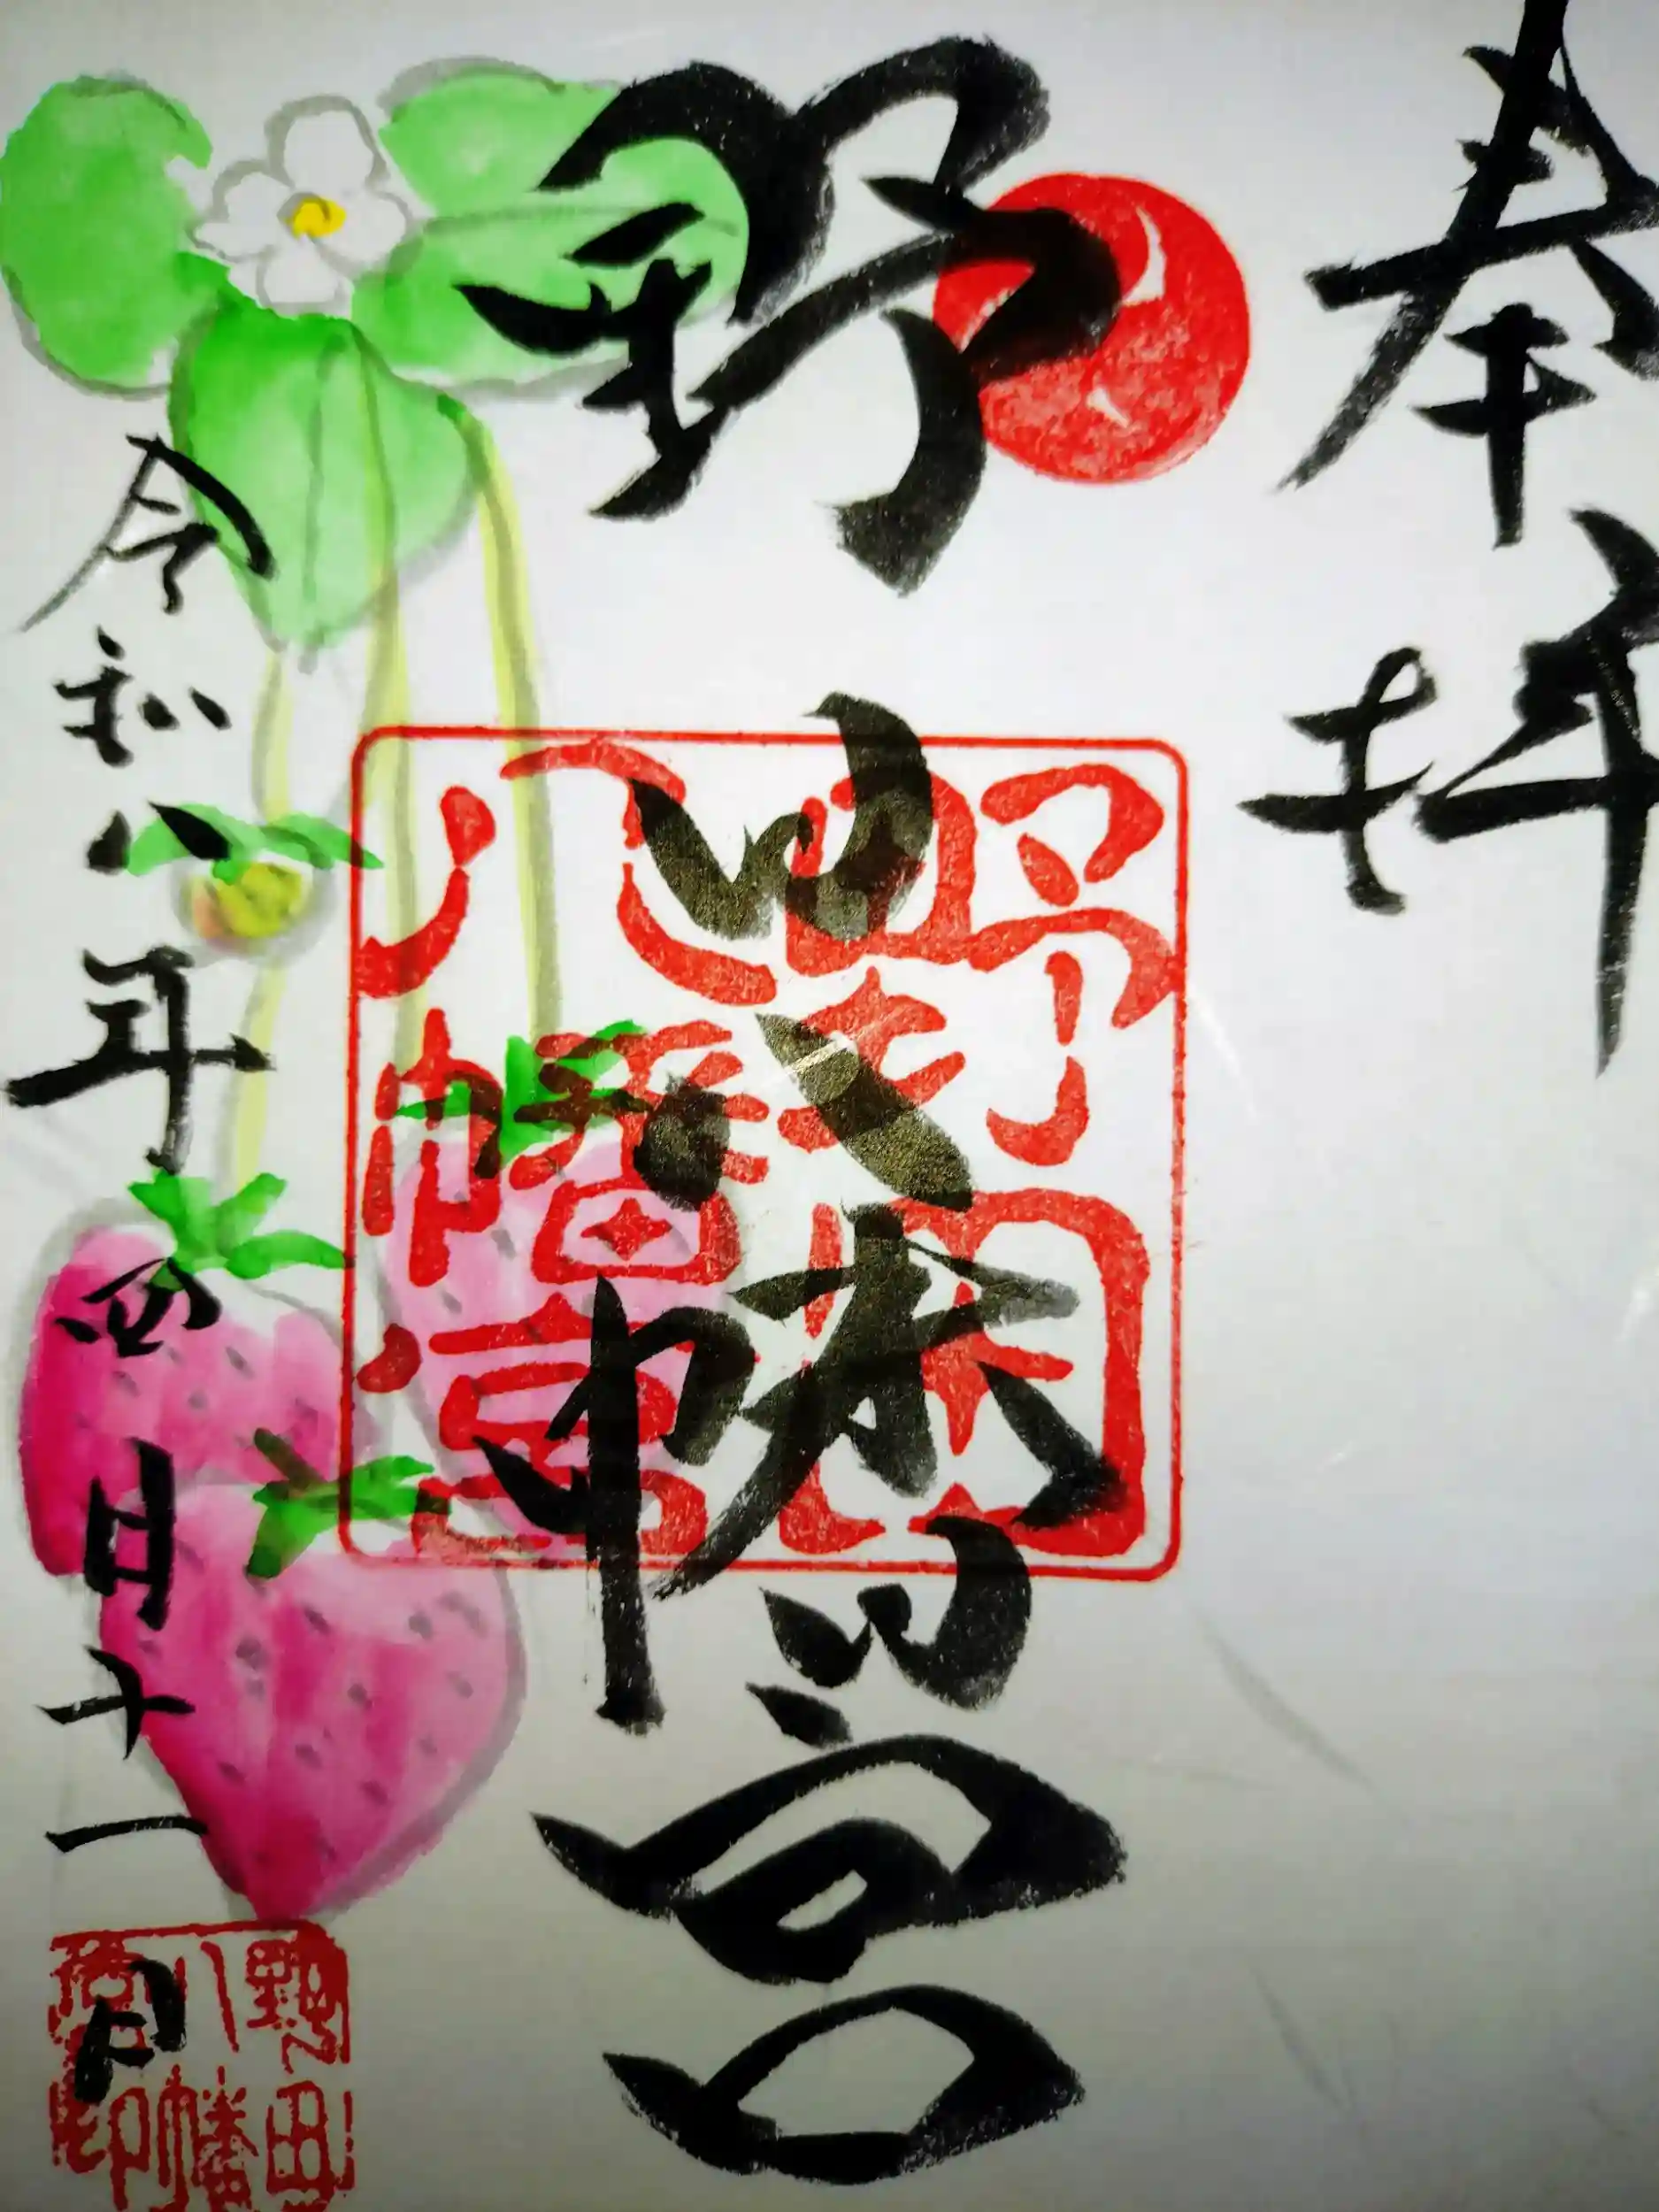 奉拝
野田八幡宮
野田
八幡宮
令和八年四月十一日
野田
八幡
宮印